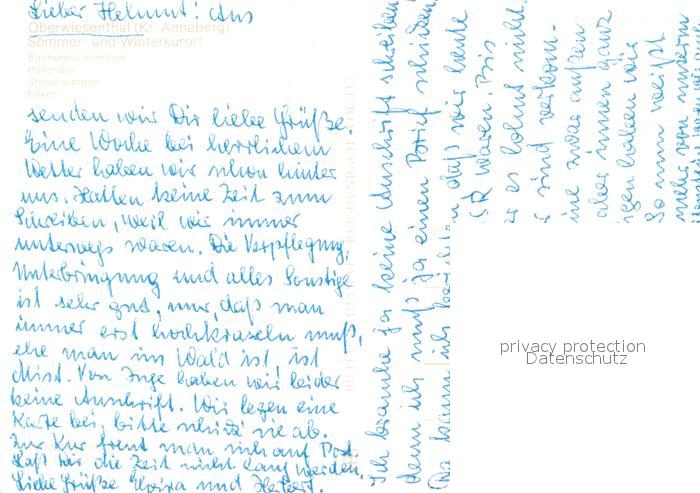 Lieber Helmut! Aus
Oberwiesenthal (Kr. Annaberg)
Sommer- und Winterkurort
Bücherei/Leseraum
Hallenbar
Steigerzimmer
Foyer
senden wir Dir liebe Grüße.
Eine Woche bei herrlichem
Wetter haben wir schon hinter
uns. Hatten keine Zeit zum
Schreiben, weil wir immer
unterwegs waren. Die Verpflegung,
Unterbringung und alles Sonstige
ist sehr gut, nur, daß man
immer erst hochkraxeln muß,
ehe man im Wald ist, ist
Mist. Von Inge haben wir leider
keine Anschrift. Wir legen eine
Karte bei, bitte schick sie ab.
Zur Kur freut man sich auf Post.
Laß Dir die Zeit nicht lang werden.
Liebe Grüße Elvira und Herbert.
Ich brauche ja keine Anschrift schreiben
denn ich muß ja einen Brief schicken.
daß wir heute
SR waren. Bis
es lohnt nicht.
sind verkom-
zwar außen
aber innen ganz
haben wir
So nun weißt
mehr von unserm
privacy protection
Datenschutz